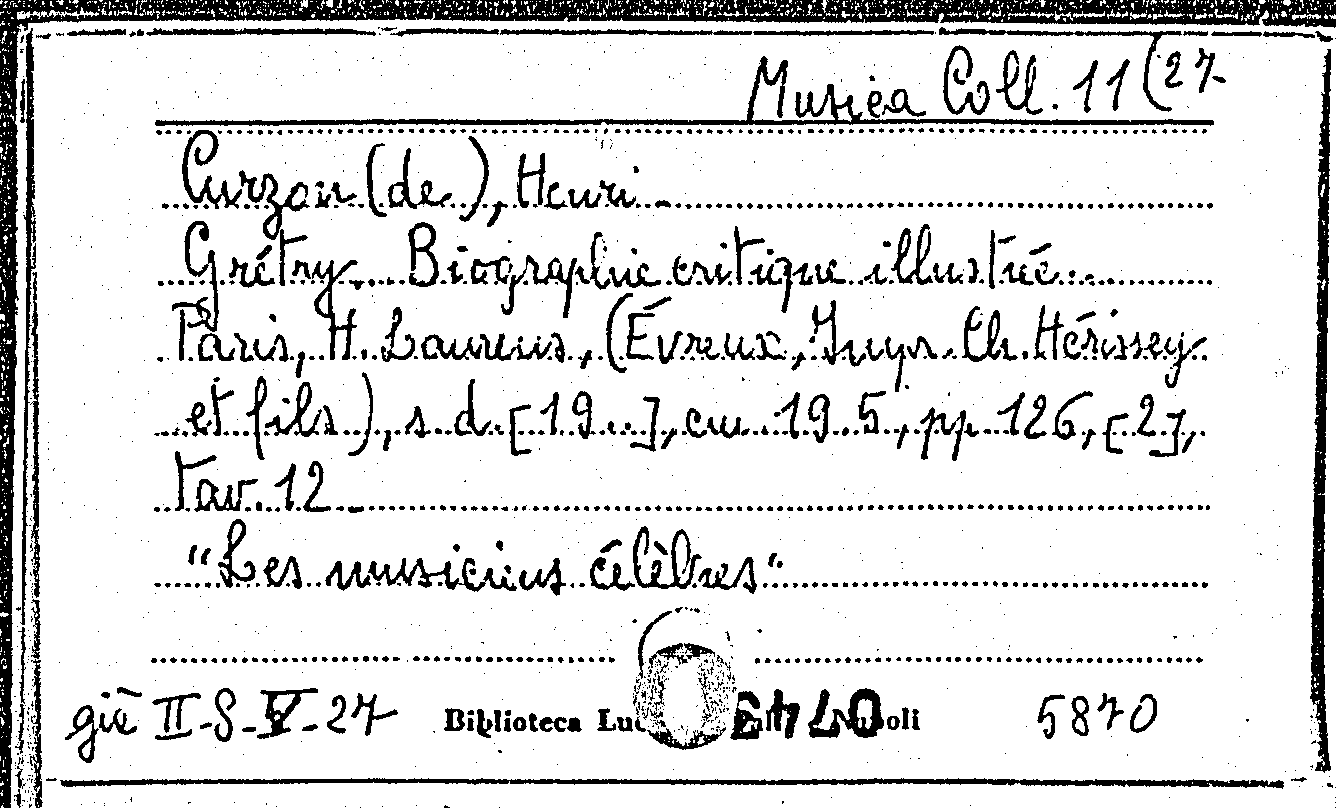 Musica Coll. 11(27
Curzon (de), Henri.
Grétry. Biographie critique illustrée..
Paris, H. Laurens, (Évreux, Impr. Ch. Hérissey
et fils), s. d. [19..], cm. 19.5, pp. 126, [2],
tav. 12
"Les musiciens célèbres"
già II-8-V-27 Biblioteca 5870